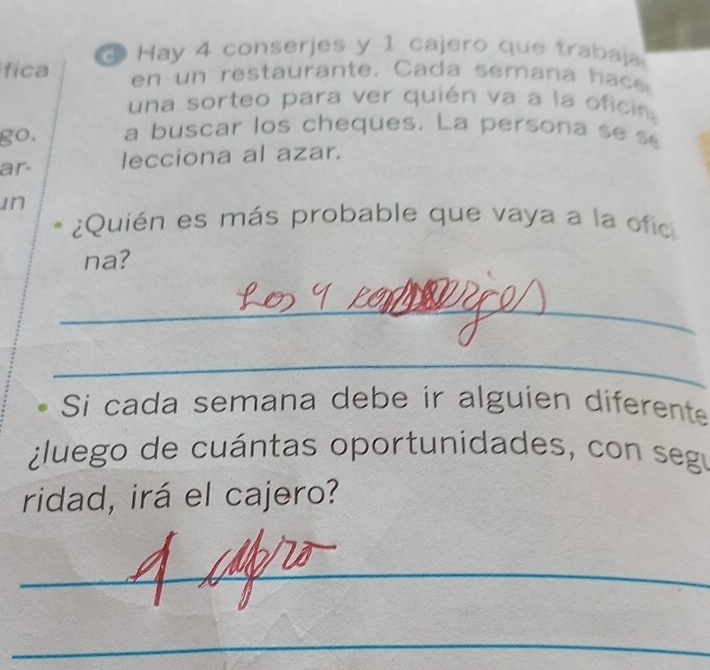 C Hay 4 conserjes y 1 cajero que trabaja
fica
en un restaurante. Cada semana hace
una sorteo para ver quién va a la oficin
go.
a buscar los cheques. La persona se se
ar-
lecciona al azar.
un
• ¿Quién es más probable que vaya a la ofici
na?
Los 4
• Si cada semana debe ir alguien diferente
¿luego de cuántas oportunidades, con segu
ridad, irá el cajero?